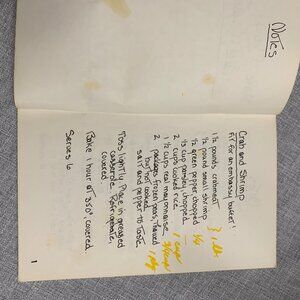 Notes
Crab and Shrimp
Fit for an embassy buffet!
1½ pounds crabmeat
½ pound small shrimp
½ green pepper, chopped
⅓ cup parsley, chopped
2 cups cooked rice
1½ cups real mayonnaise
2 packages frozen peas, thawed
but not cooked
salt and pepper to taste
Toss lightly. Place in greased
casserole. Refrigerate,
covered.
Bake 1 hour at 350°, covered.
Serves 6
1